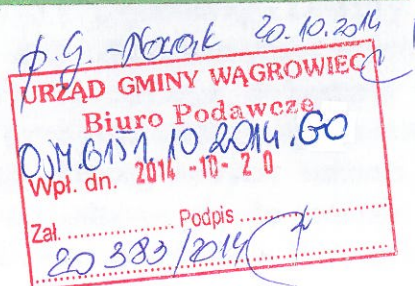 p. G. - Nowak 20.10.2014
URZĄD GMINY WĄGROWIEC
Biuro Podawcze
6151.10.2014.GO
Wpł. dn. 2014 -10- 20
Zał. .................. Podpis ..................
20383/2014